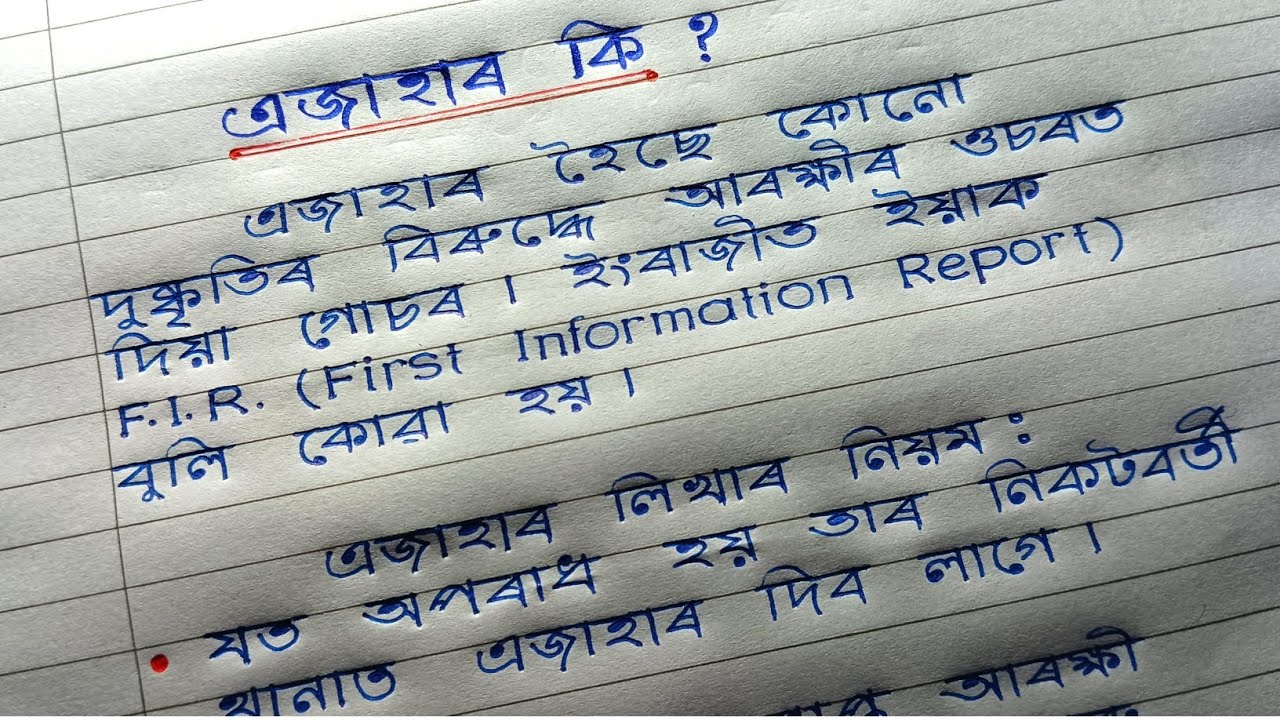 এজাহাৰ কি ?
এজাহাৰ হৈছে কোনো
দুষ্কৃতিৰ বিৰুদ্ধে আৰক্ষীৰ ওচৰত
দিয়া গোচৰ । ইংৰাজীত ইয়াক
F.I.R. (First Information Report)
বুলি কোৱা হয় ।
এজাহাৰ লিখাৰ নিয়ম :
• যত অপৰাধ হয় তাৰ নিকটবৰ্তী
থানাত এজাহাৰ দিব লাগে ।
আৰক্ষী